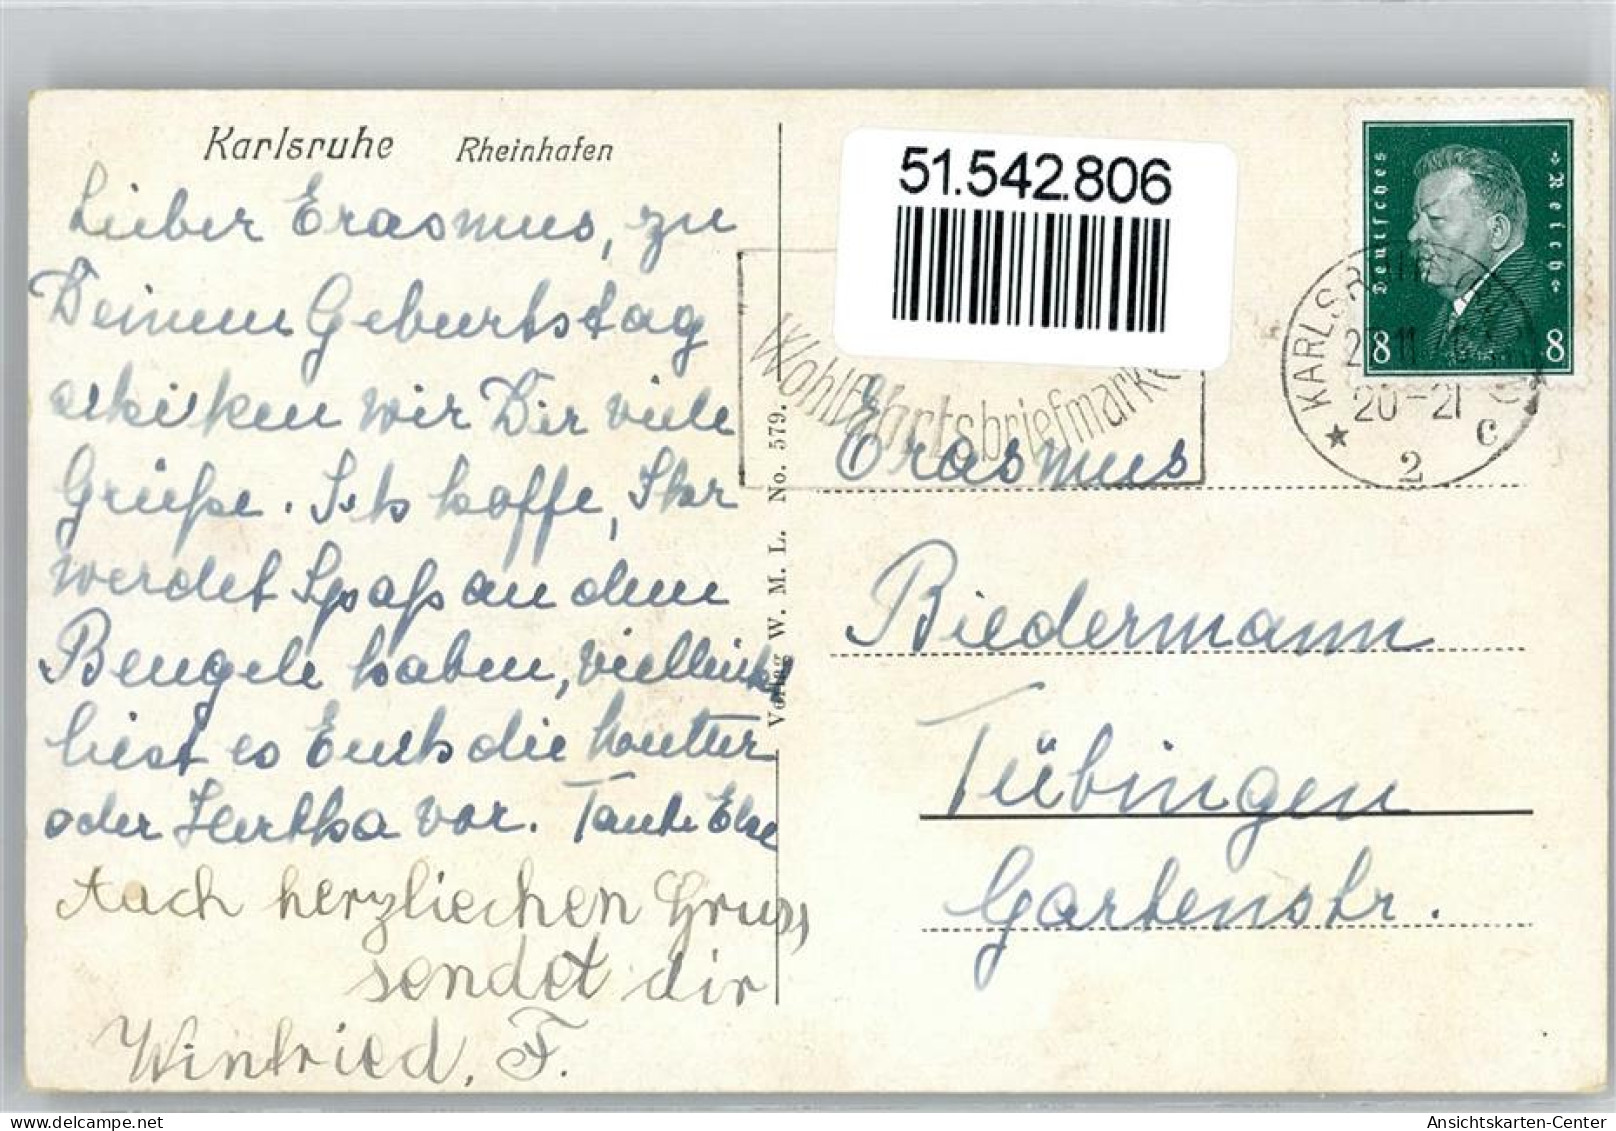 Karlsruhe Rheinhafen
Lieber Erasmus, zu
Deinem Geburtstag
schicken wir Dir viele
Grüße. Ich hoffe, Ihr
werdet Spaß an dem
Bengele haben, vielleicht
liest es Euch die Mutter
oder Hertha vor. Tante Else
Auch herzlichen Gruss
sendet dir
Winfried. F.
Verlag W. M. L. No. 579.
51.542.806
Wohlfahrtsbriefmarke
Deutsches Reich
8 8
KARLSRUHE
11
20-21
★ 2 c
Erasmus
Biedermann
Tübingen
Gartenstr.
Ansichtskarten-Center